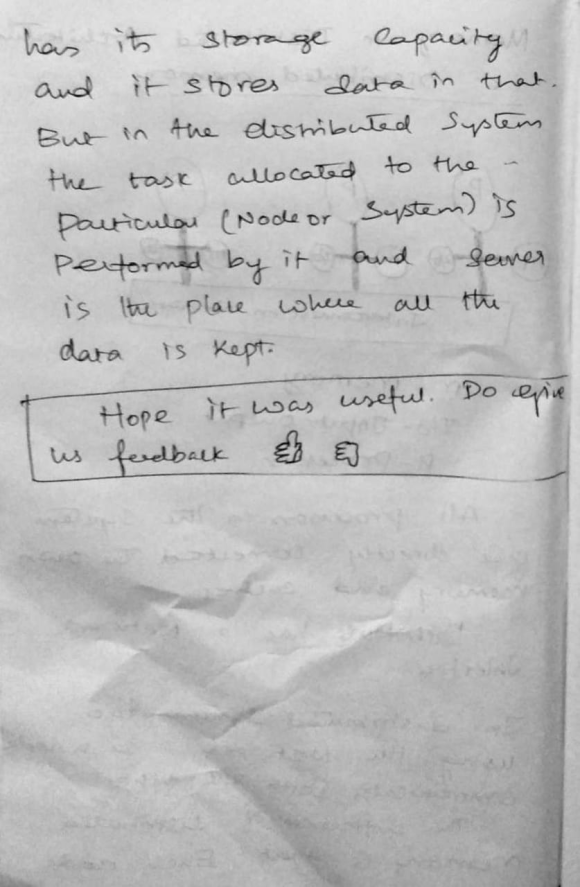 has its storage capacity
and it stores data in that.
But in the distributed System
the task allocated to the -
Particular (Node or System) is
Performed by it and server
is the place where all the
data is kept.
Hope it was useful. Do give
us feedback